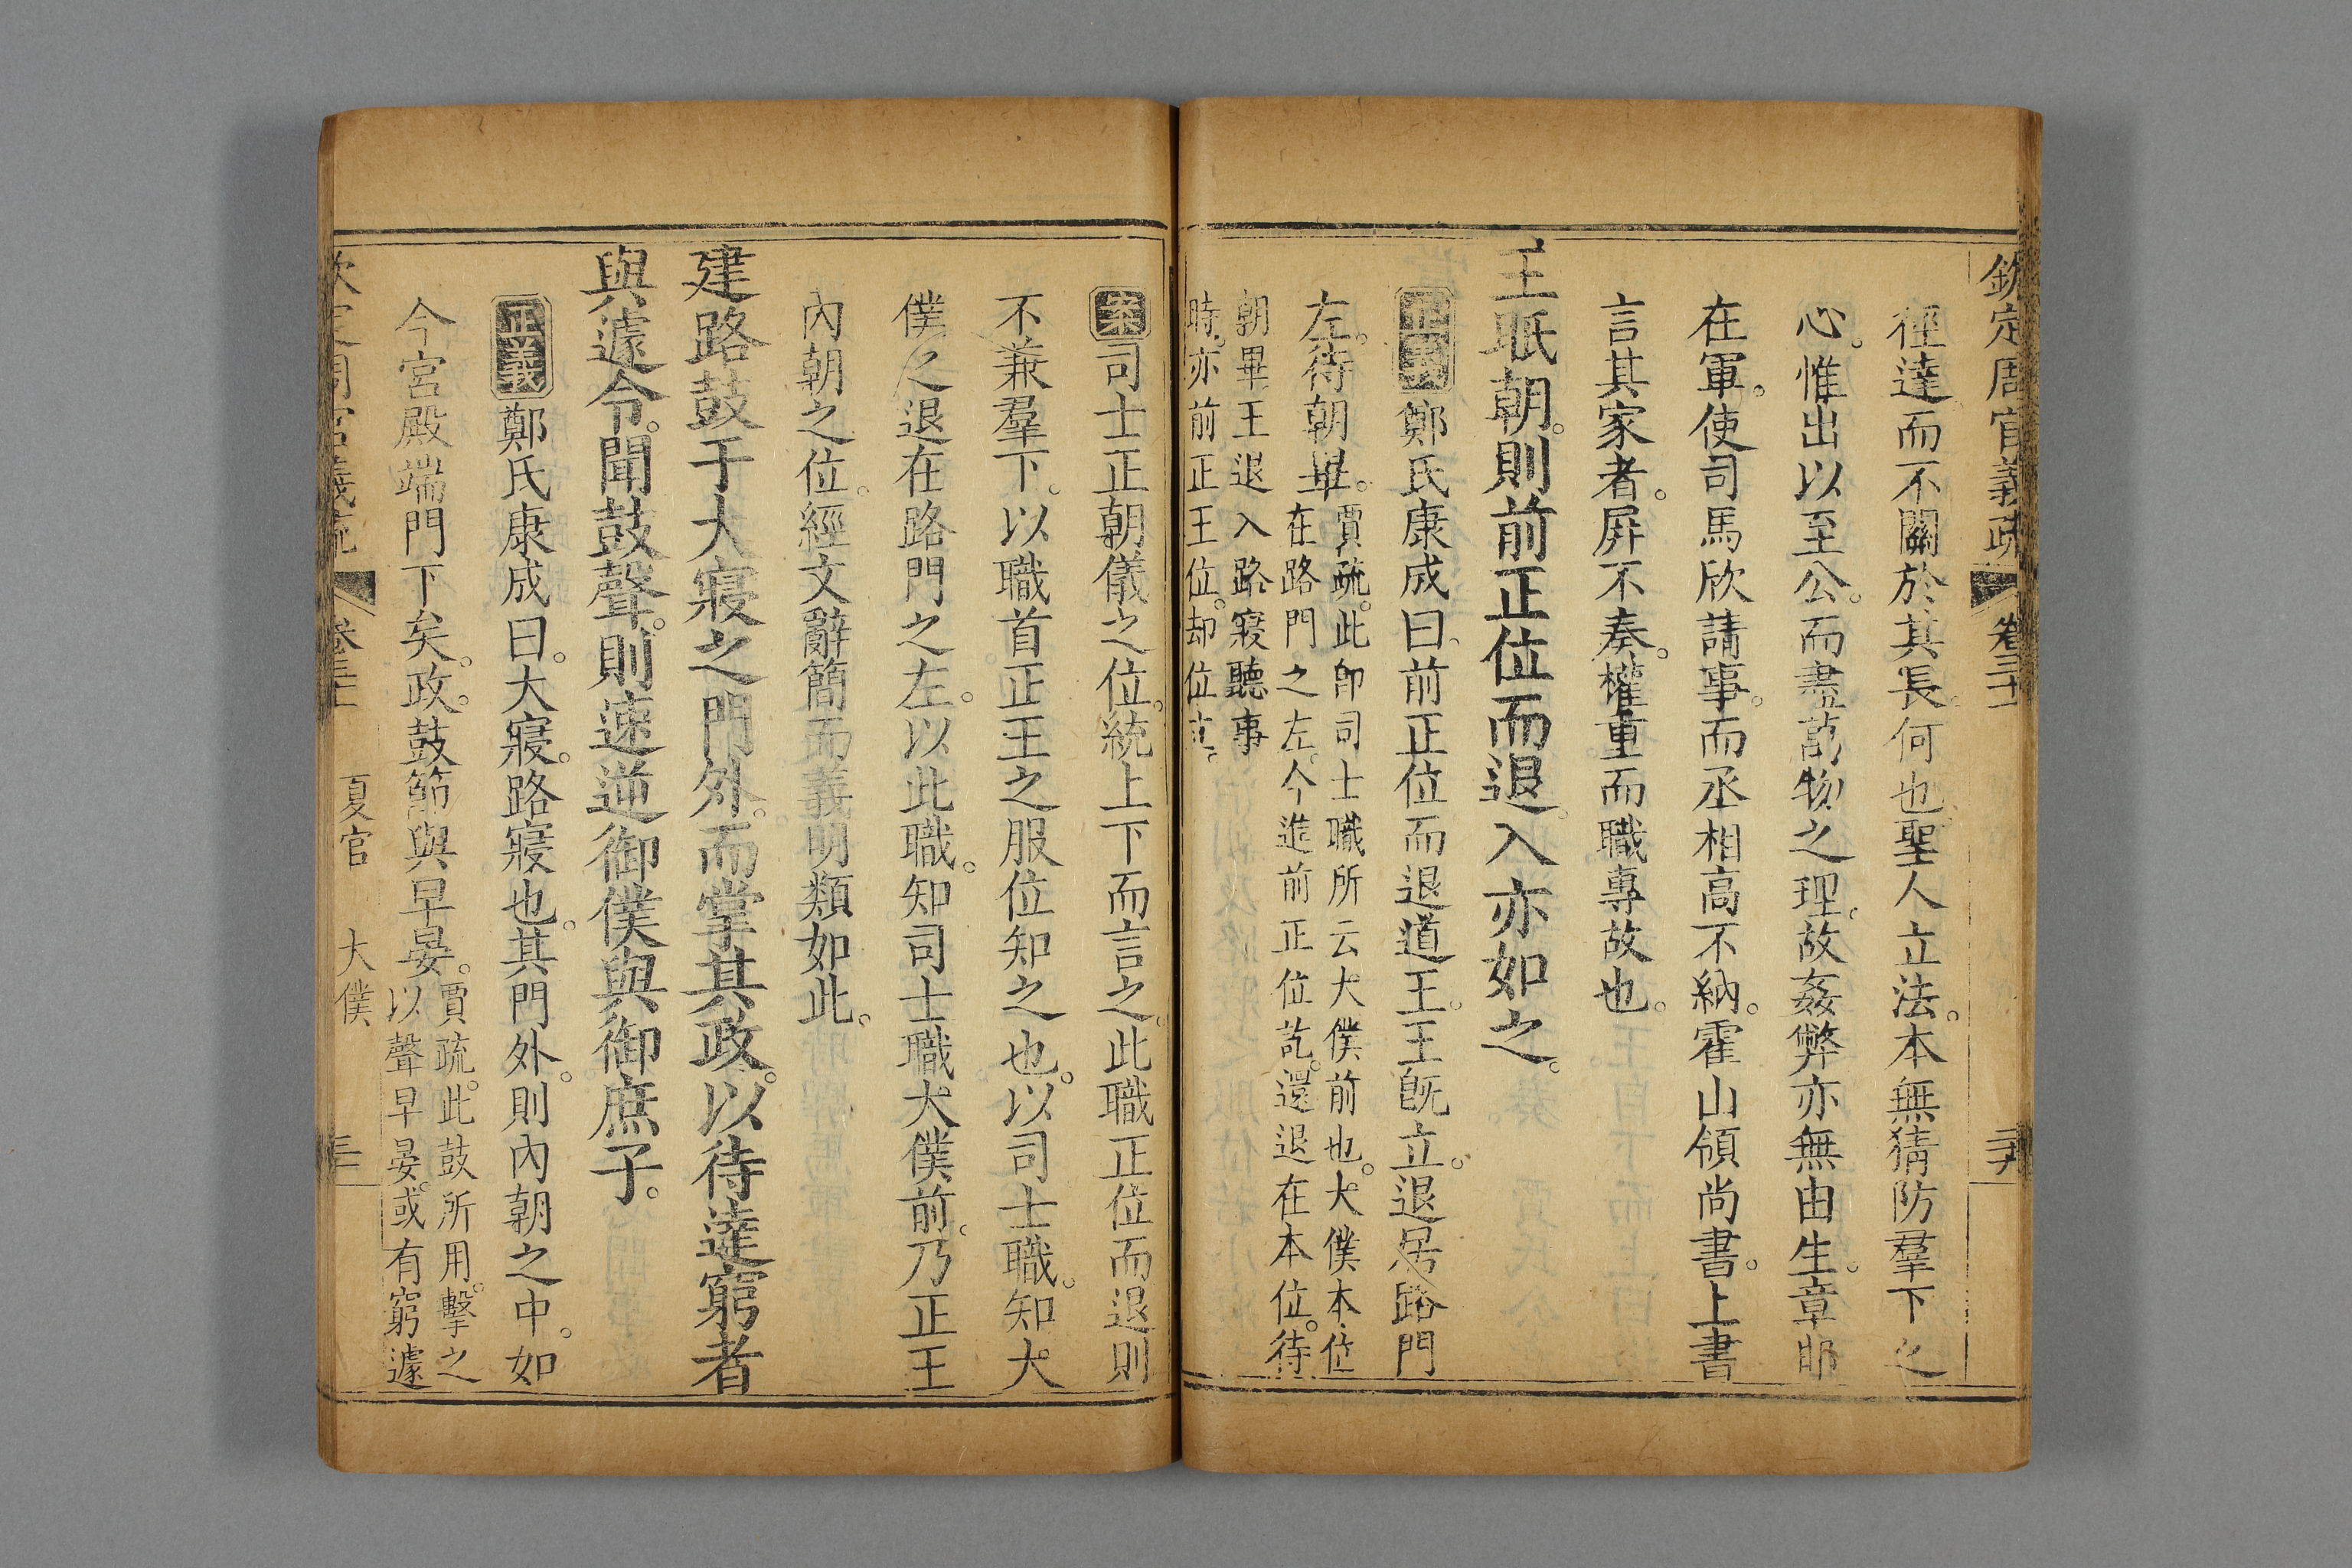 欽定周官義疏 卷三十一 三六
徑達而不關於其長何也聖人立法。本無猜防羣下之
心。惟出以至公。而盡萬物之理。故姦弊亦無由生。章邯
在軍。使司馬欣請事。而丞相高不納。霍山領尚書。上書
言其家者。屏不奏。權重而職專故也。
王眂朝。則前正位而退。入亦如之。
正義鄭氏康成曰。前正位而退道王。王旣立。退居路門
左。待朝畢。
賈疏。此卽司士職所云大僕前也。大僕本位
在路門之左。今進前正位訖。還退在本位。待
朝畢王退入路寢聽事
時。亦前正王位。却位立。
案司士正朝儀之位。統上下而言之。此職正位而退則
不兼羣下。以職首正王之服位知之也。以司士職。知大
僕之退在路門之左。以此職。知司士職大僕前。乃正王
內朝之位。經文辭簡而義明類如此。
建路鼓于大寢之門外。而掌其政。以待達窮者
與遽令。聞鼓聲。則速逆御僕與御庶子。
正義鄭氏康成曰。大寢。路寢也。其門外。則內朝之中。如
今宮殿端門下矣。政。鼓節與早晏。
賈疏。此鼓所用。擊之
以聲早晏。或有窮遽
夏官 大僕